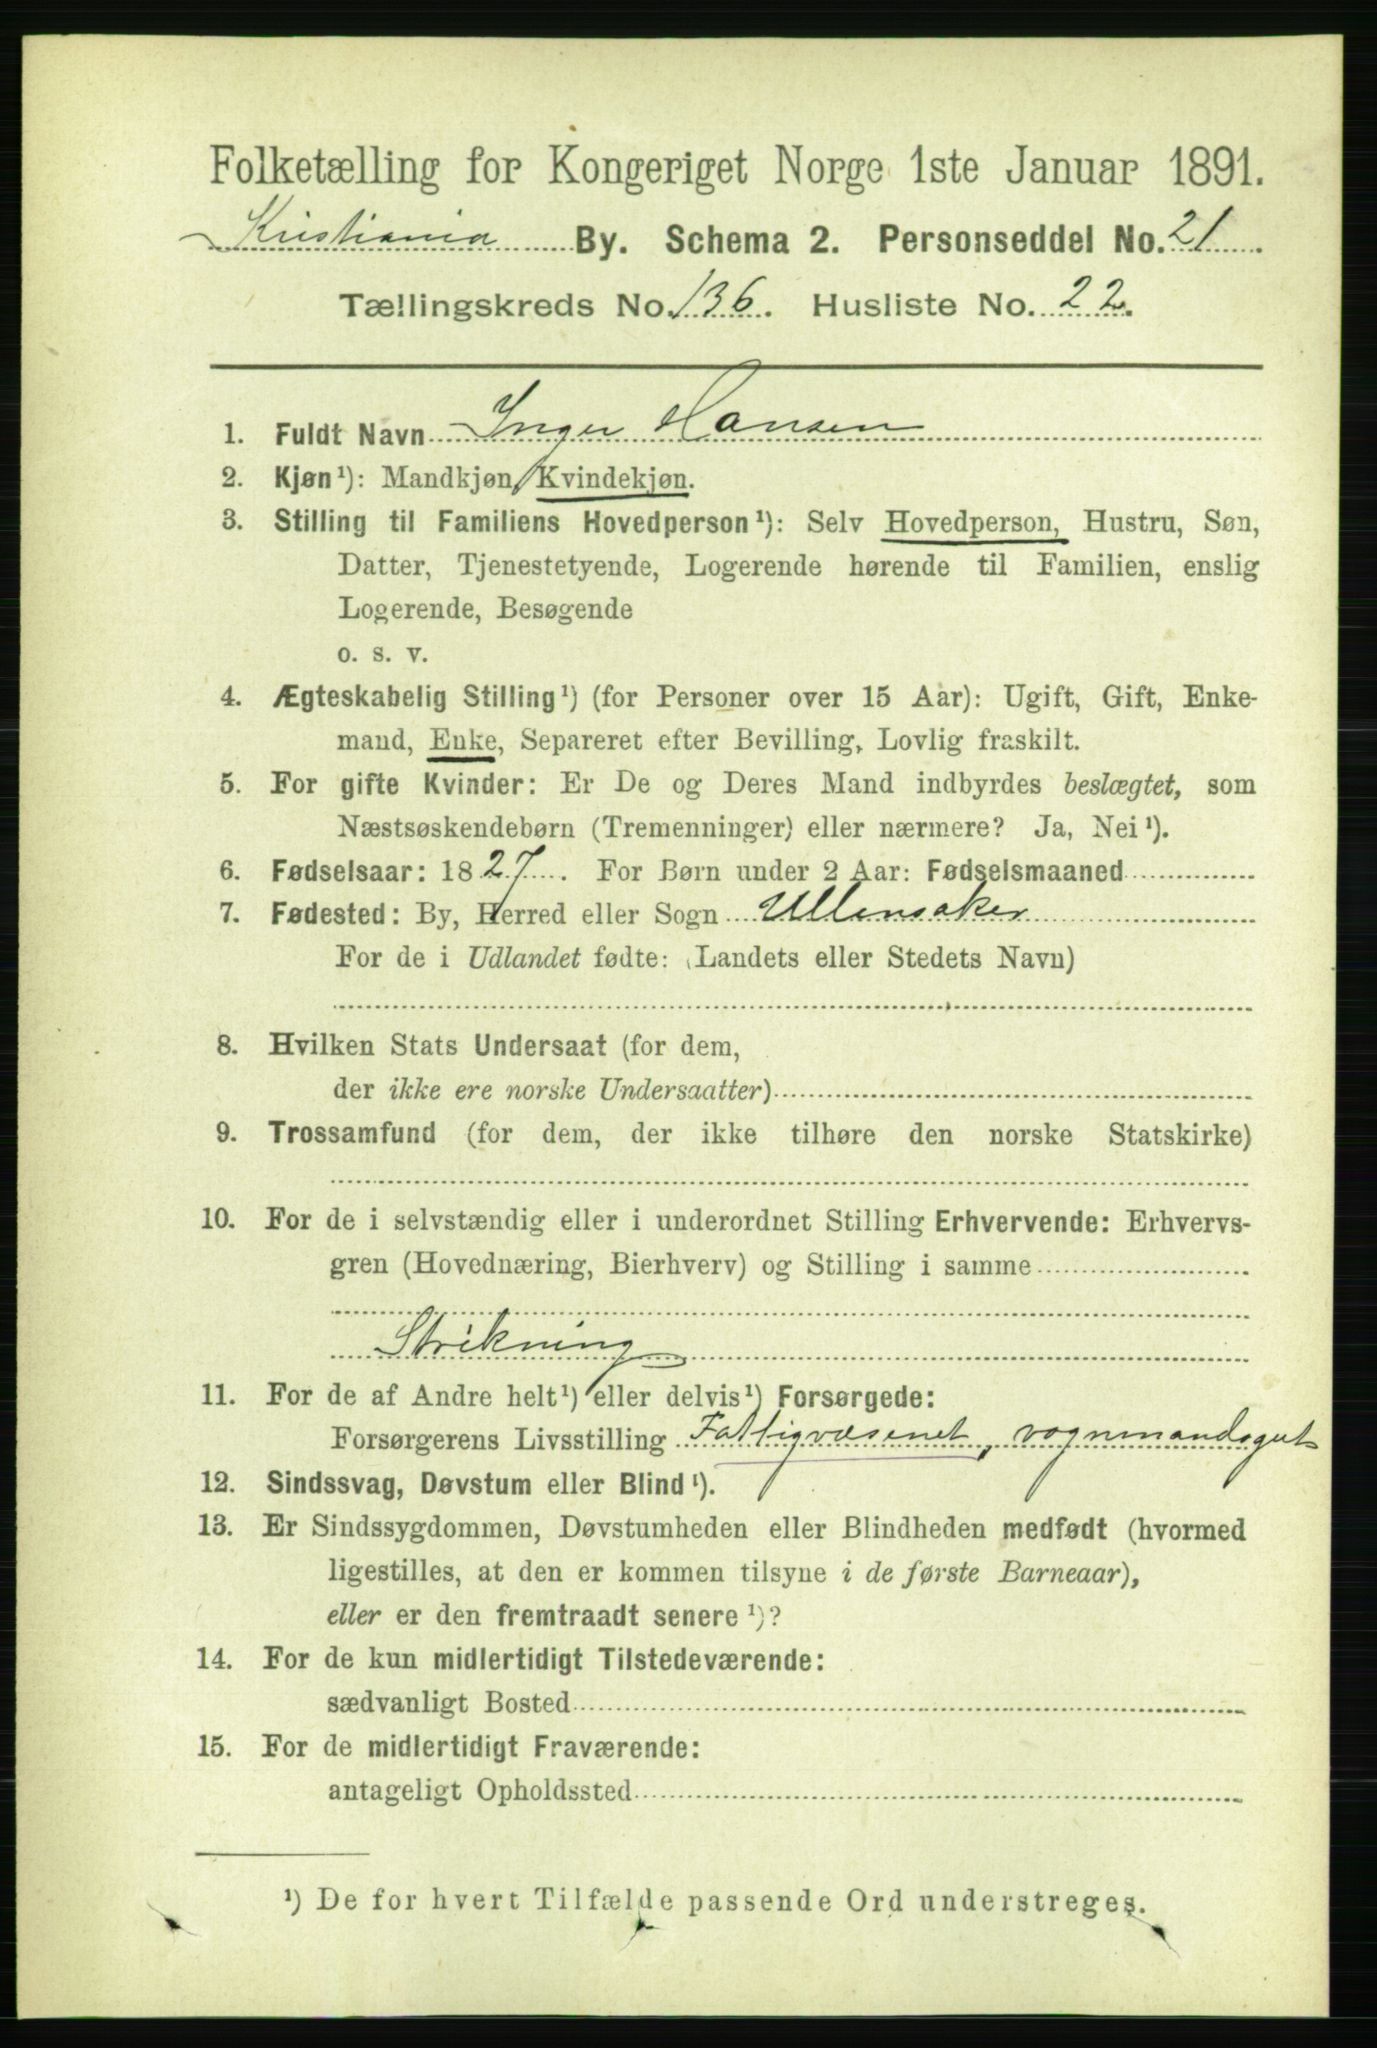 Folketælling for Kongeriget Norge 1ste Januar 1891.
Kristiania By. Schema 2. Personseddel No. 21.
Tællingskreds No. 136. Husliste No. 22.
1. Fuldt Navn Inger Hansen
2. Kjøn¹): Mandkjøn, Kvindekjøn.
3. Stilling til Familiens Hovedperson¹): Selv Hovedperson, Hustru, Søn,
Datter, Tjenestetyende, Logerende hørende til Familien, enslig
Logerende, Besøgende
o. s. v.
4. Ægteskabelig Stilling¹) (for Personer over 15 Aar): Ugift, Gift, Enke-
mand, Enke, Separeret efter Bevilling, Lovlig fraskilt.
5. For gifte Kvinder: Er De og Deres Mand indbyrdes beslægtet, som
Næstsøskendebørn (Tremenninger) eller nærmere? Ja, Nei¹).
6. Fødselsaar: 1827. For Børn under 2 Aar: Fødselsmaaned
7. Fødested: By, Herred eller Sogn Ullensaker
For de i Udlandet fødte: (Landets eller Stedets Navn)
8. Hvilken Stats Undersaat (for dem,
der ikke ere norske Undersaatter)
9. Trossamfund (for dem, der ikke tilhøre den norske Statskirke)
10. For de i selvstændig eller i underordnet Stilling Erhvervende: Erhvervs-
gren (Hovednæring, Bierhverv) og Stilling i samme
Strikning
11. For de af Andre helt¹) eller delvis¹) Forsørgede:
Forsørgerens Livsstilling Fattigvæsenet, vognmandsgut
12. Sindssvag, Døvstum eller Blind¹).
13. Er Sindssygdommen, Døvstumheden eller Blindheden medfødt (hvormed
ligestilles, at den er kommen tilsyne i de første Barneaar),
eller er den fremtraadt senere¹)?
14. For de kun midlertidigt Tilstedeværende:
sædvanligt Bosted
15. For de midlertidigt Fraværende:
antageligt Opholdssted
¹) De for hvert Tilfælde passende Ord understreges.